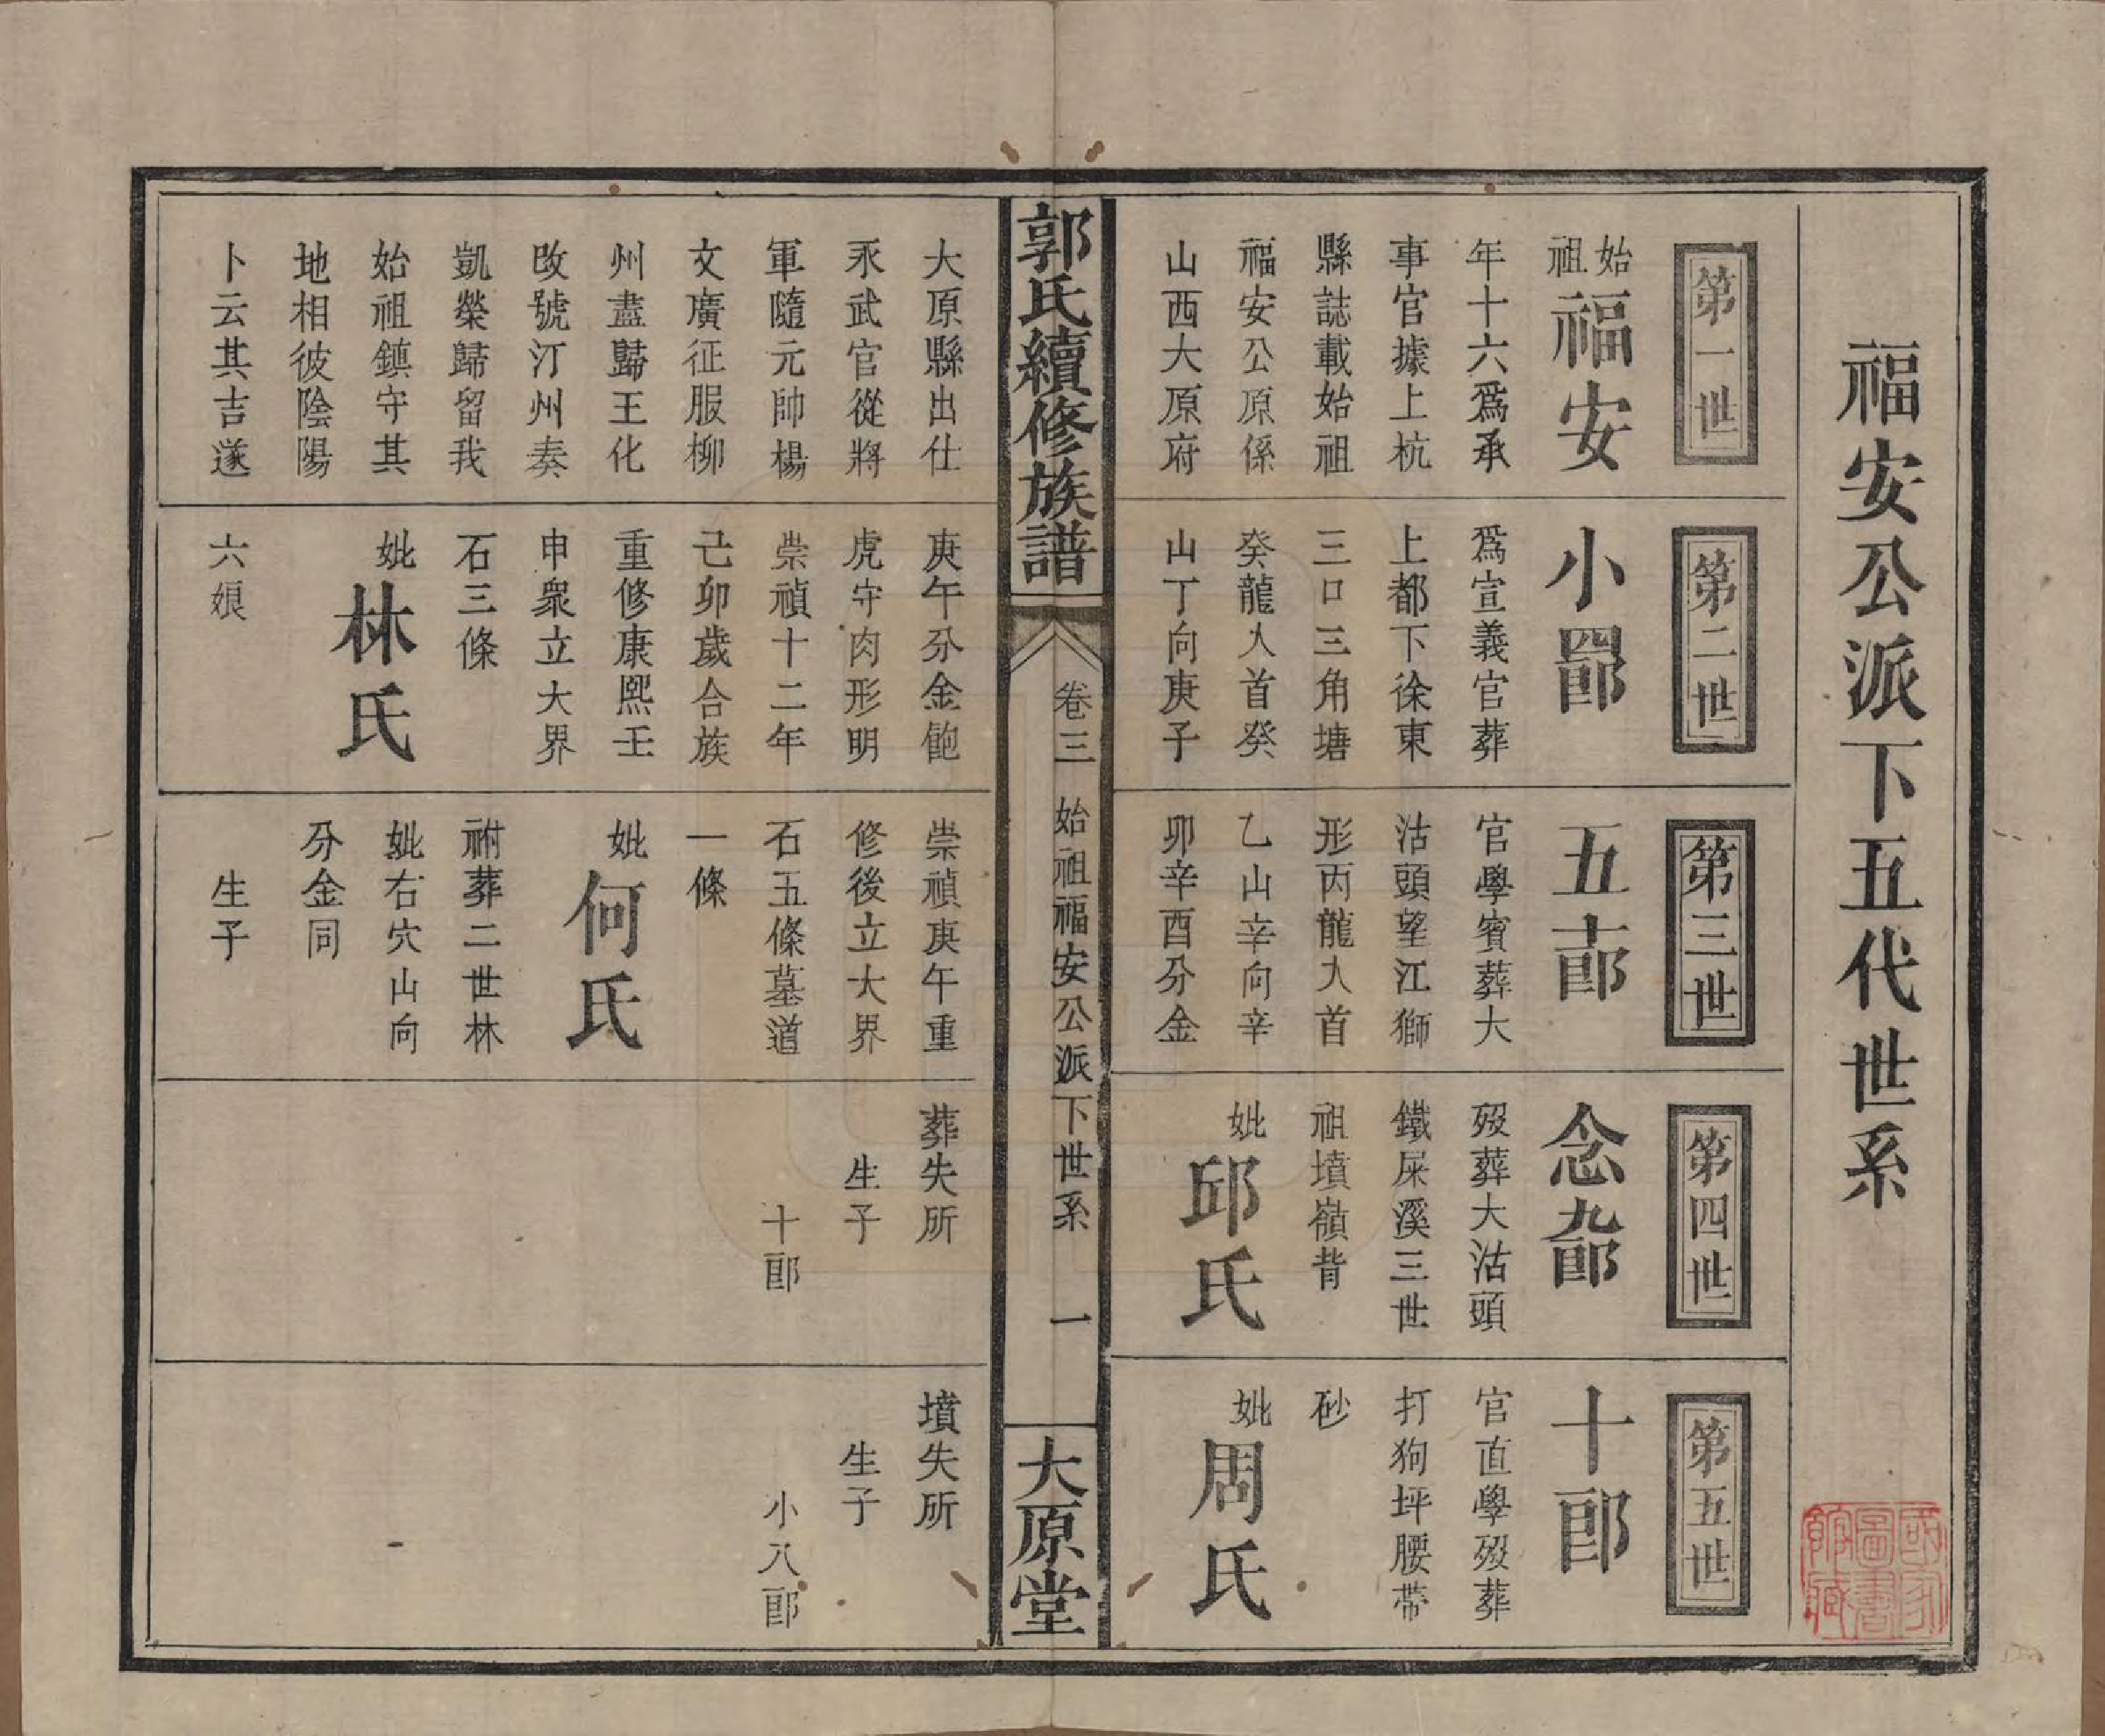 福安公派下五代世系
第一世
始祖福安
年十六爲承
事官據上杭
縣誌載始祖
福安公原係
山西大原府
第二世
小四郎
爲宣義官葬
上都下徐東
三口三角塘
癸龍入首癸
山丁向庚子
第三世
五十郎
官學賓葬大
沽頭望江獅
形丙龍入首
乙山辛向辛
卯辛酉分金
第四世
念九郎
歿葬大沽頭
鐵屎溪三世
祖墳嶺背
妣邱氏
第五世
十郎
官直學歿葬
打狗坪腰帶
砂
妣周氏
郭氏續修族譜
卷三 始祖福安公派下世系 一
大原堂
大原縣出仕
永武官從將
軍隨元帥楊
文廣征服柳
州盡歸王化
改號汀州奏
凱榮歸留我
始祖鎮守其
地相彼陰陽
卜云其吉遂
庚午分金飽
虎守肉形明
崇禎十二年
己卯歲合族
重修康熙壬
申衆立大界
石三條
妣林氏
六娘
崇禎庚午重
修後立大界
石五條墓道
一條
妣何氏
祔葬二世林
妣右穴山向
分金同
生子
葬失所
生子
十郎
墳失所
生子
小八郎
國家圖書館藏